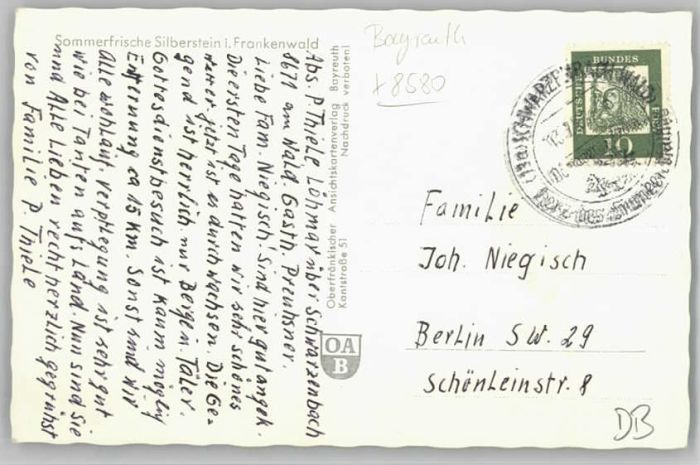 Sommerfrische Silberstein i. Frankenwald
Abs. P. Thiele, Löhmar über Schwarzenbach
8671 am Wald. Gasth. Preuhsner.
Liebe Fam. Niegisch! Sind hier gut angek.
Die ersten Tage hatten wir sehr schönes
Wetter jetzt ist es durchwachsen. Die Ge-
gend ist herrlich nur Bergen. Täler.
Gottesdienstbesuch ist kaum möglig
Entfernung ca 15 Km. Sonst sind wir
Alle wohlauf. Verpflegung ist sehr gut
wie bei Tanten aufs Land. Nun sind Sie
und Alle Lieben recht herzlich gegrüßt
von Familie P. Thiele
Oberfränkischer Ansichtskartenverlag Bayreuth
Kantstraße 51 Nachdruck verboten!
OA
B
Bayreuth
+8580
DEUTSCHE
BUNDES
POST
10
Familie
Joh. Niegisch
Berlin SW. 29
Schönleinstr. 8
DB